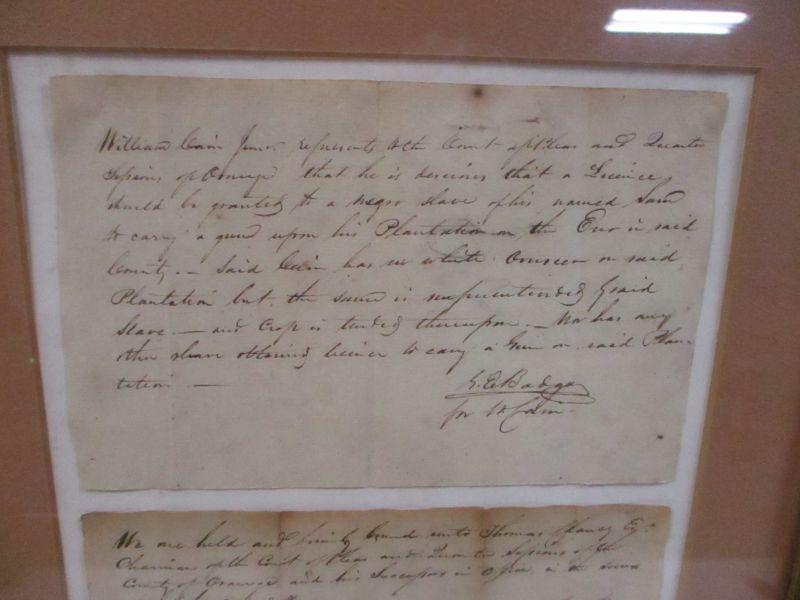 William Cain Junr. represents to the Court of Pleas and Quarter
Sessions of Orange that he is desirous that a Licence
should be granted to a negro slave of his named Sam
to carry a gun upon his Plantation on the Eno in said
County. — Said Cain has no white Overseer on said
Plantation but the same is superintended by said
Slave — and Crop is tended thereupon. — Nor has any
other slave obtained licence to carry a Gun on said Plan-
tation —
G. E. Badger
for W Cain.
We are held and firmly bound unto Thomas Esqr.
Chairman of the Court of Pleas and Quarter Sessions of the
County of Orange and his Successors in Office in the